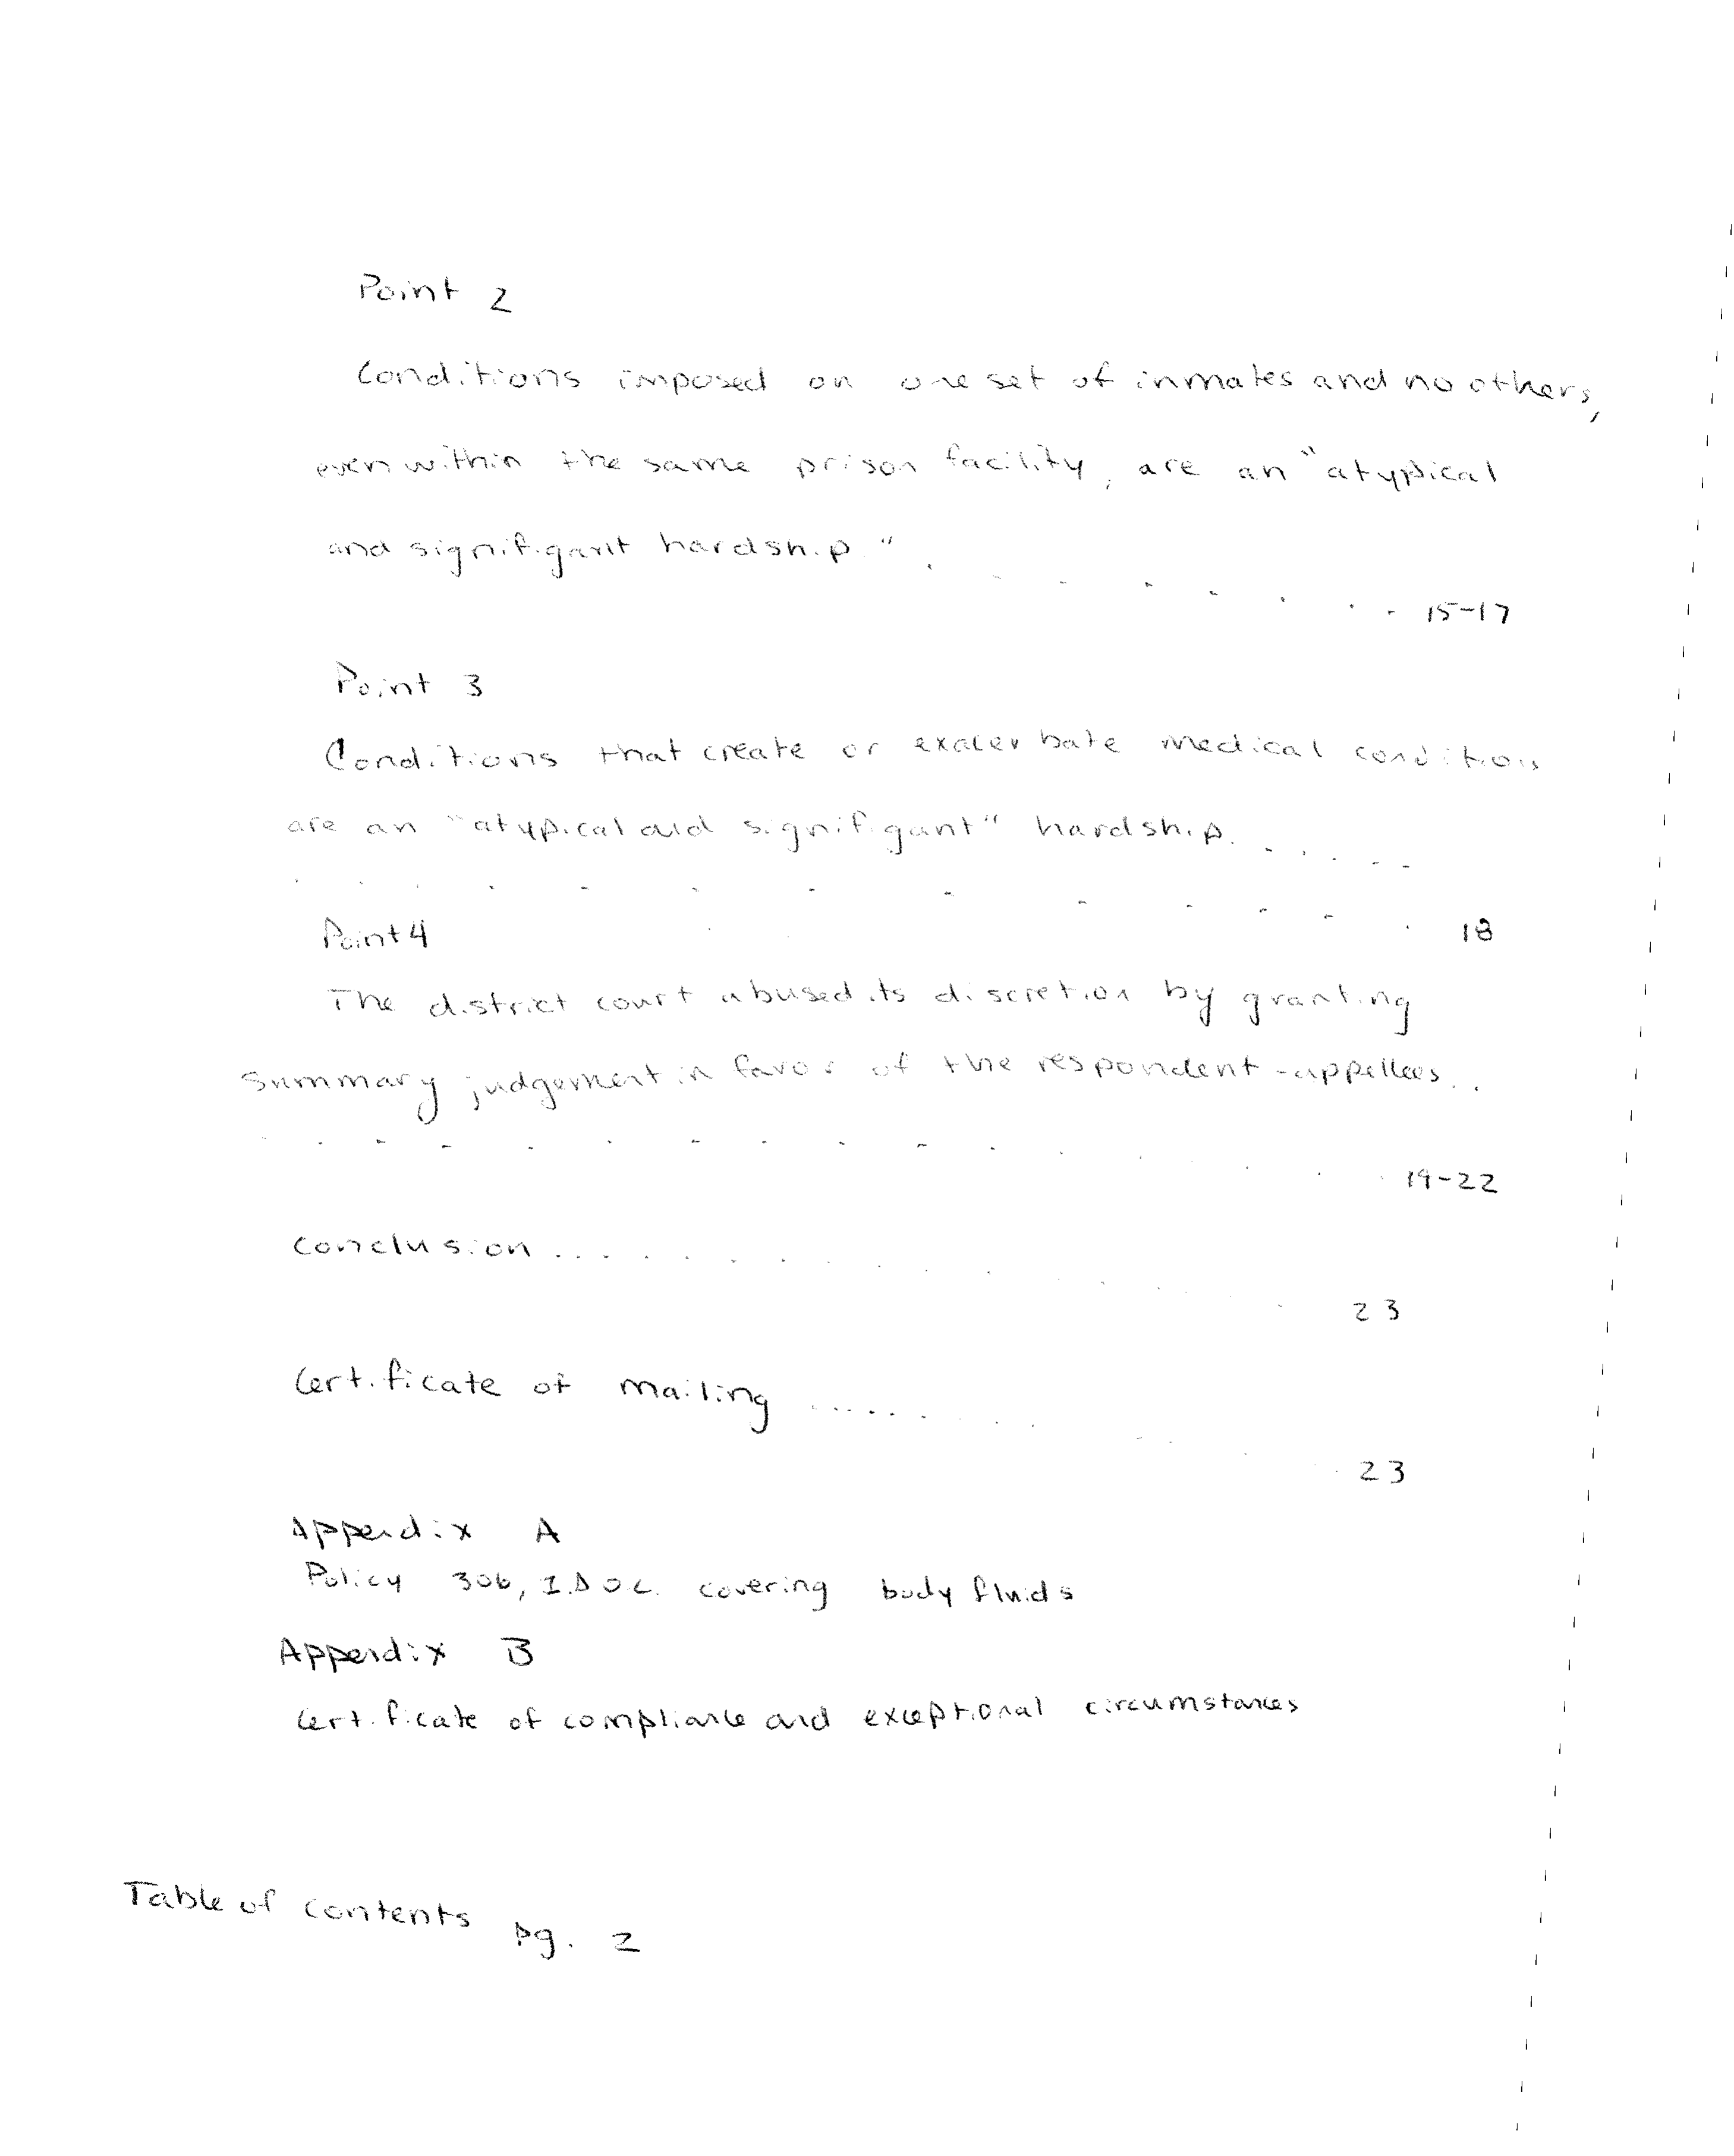 Point 2
Conditions imposed on one set of inmates and no others,
even within the same prison facility, are an "atypical
and signifigant hardship." . . . . . . . . 15-17
Point 3
Conditions that create or exacerbate medical condition
are an "atypical and signifigant" hardship. . . . . .
. . . . . . . . . . . . . 18
Point 4
The district court abused its discretion by granting
summary judgement in favor of the respondent-appellees. .
. . . . . . . . . . . . . . 19-22
Conclusion . . . . . . . . . . . . 23
Certificate of mailing . . . . . . . . . . . 23
Appendix A
Policy 306, I.D.O.C. covering body fluids
Appendix B
Certificate of compliance and exceptional circumstances
Table of contents pg. 2